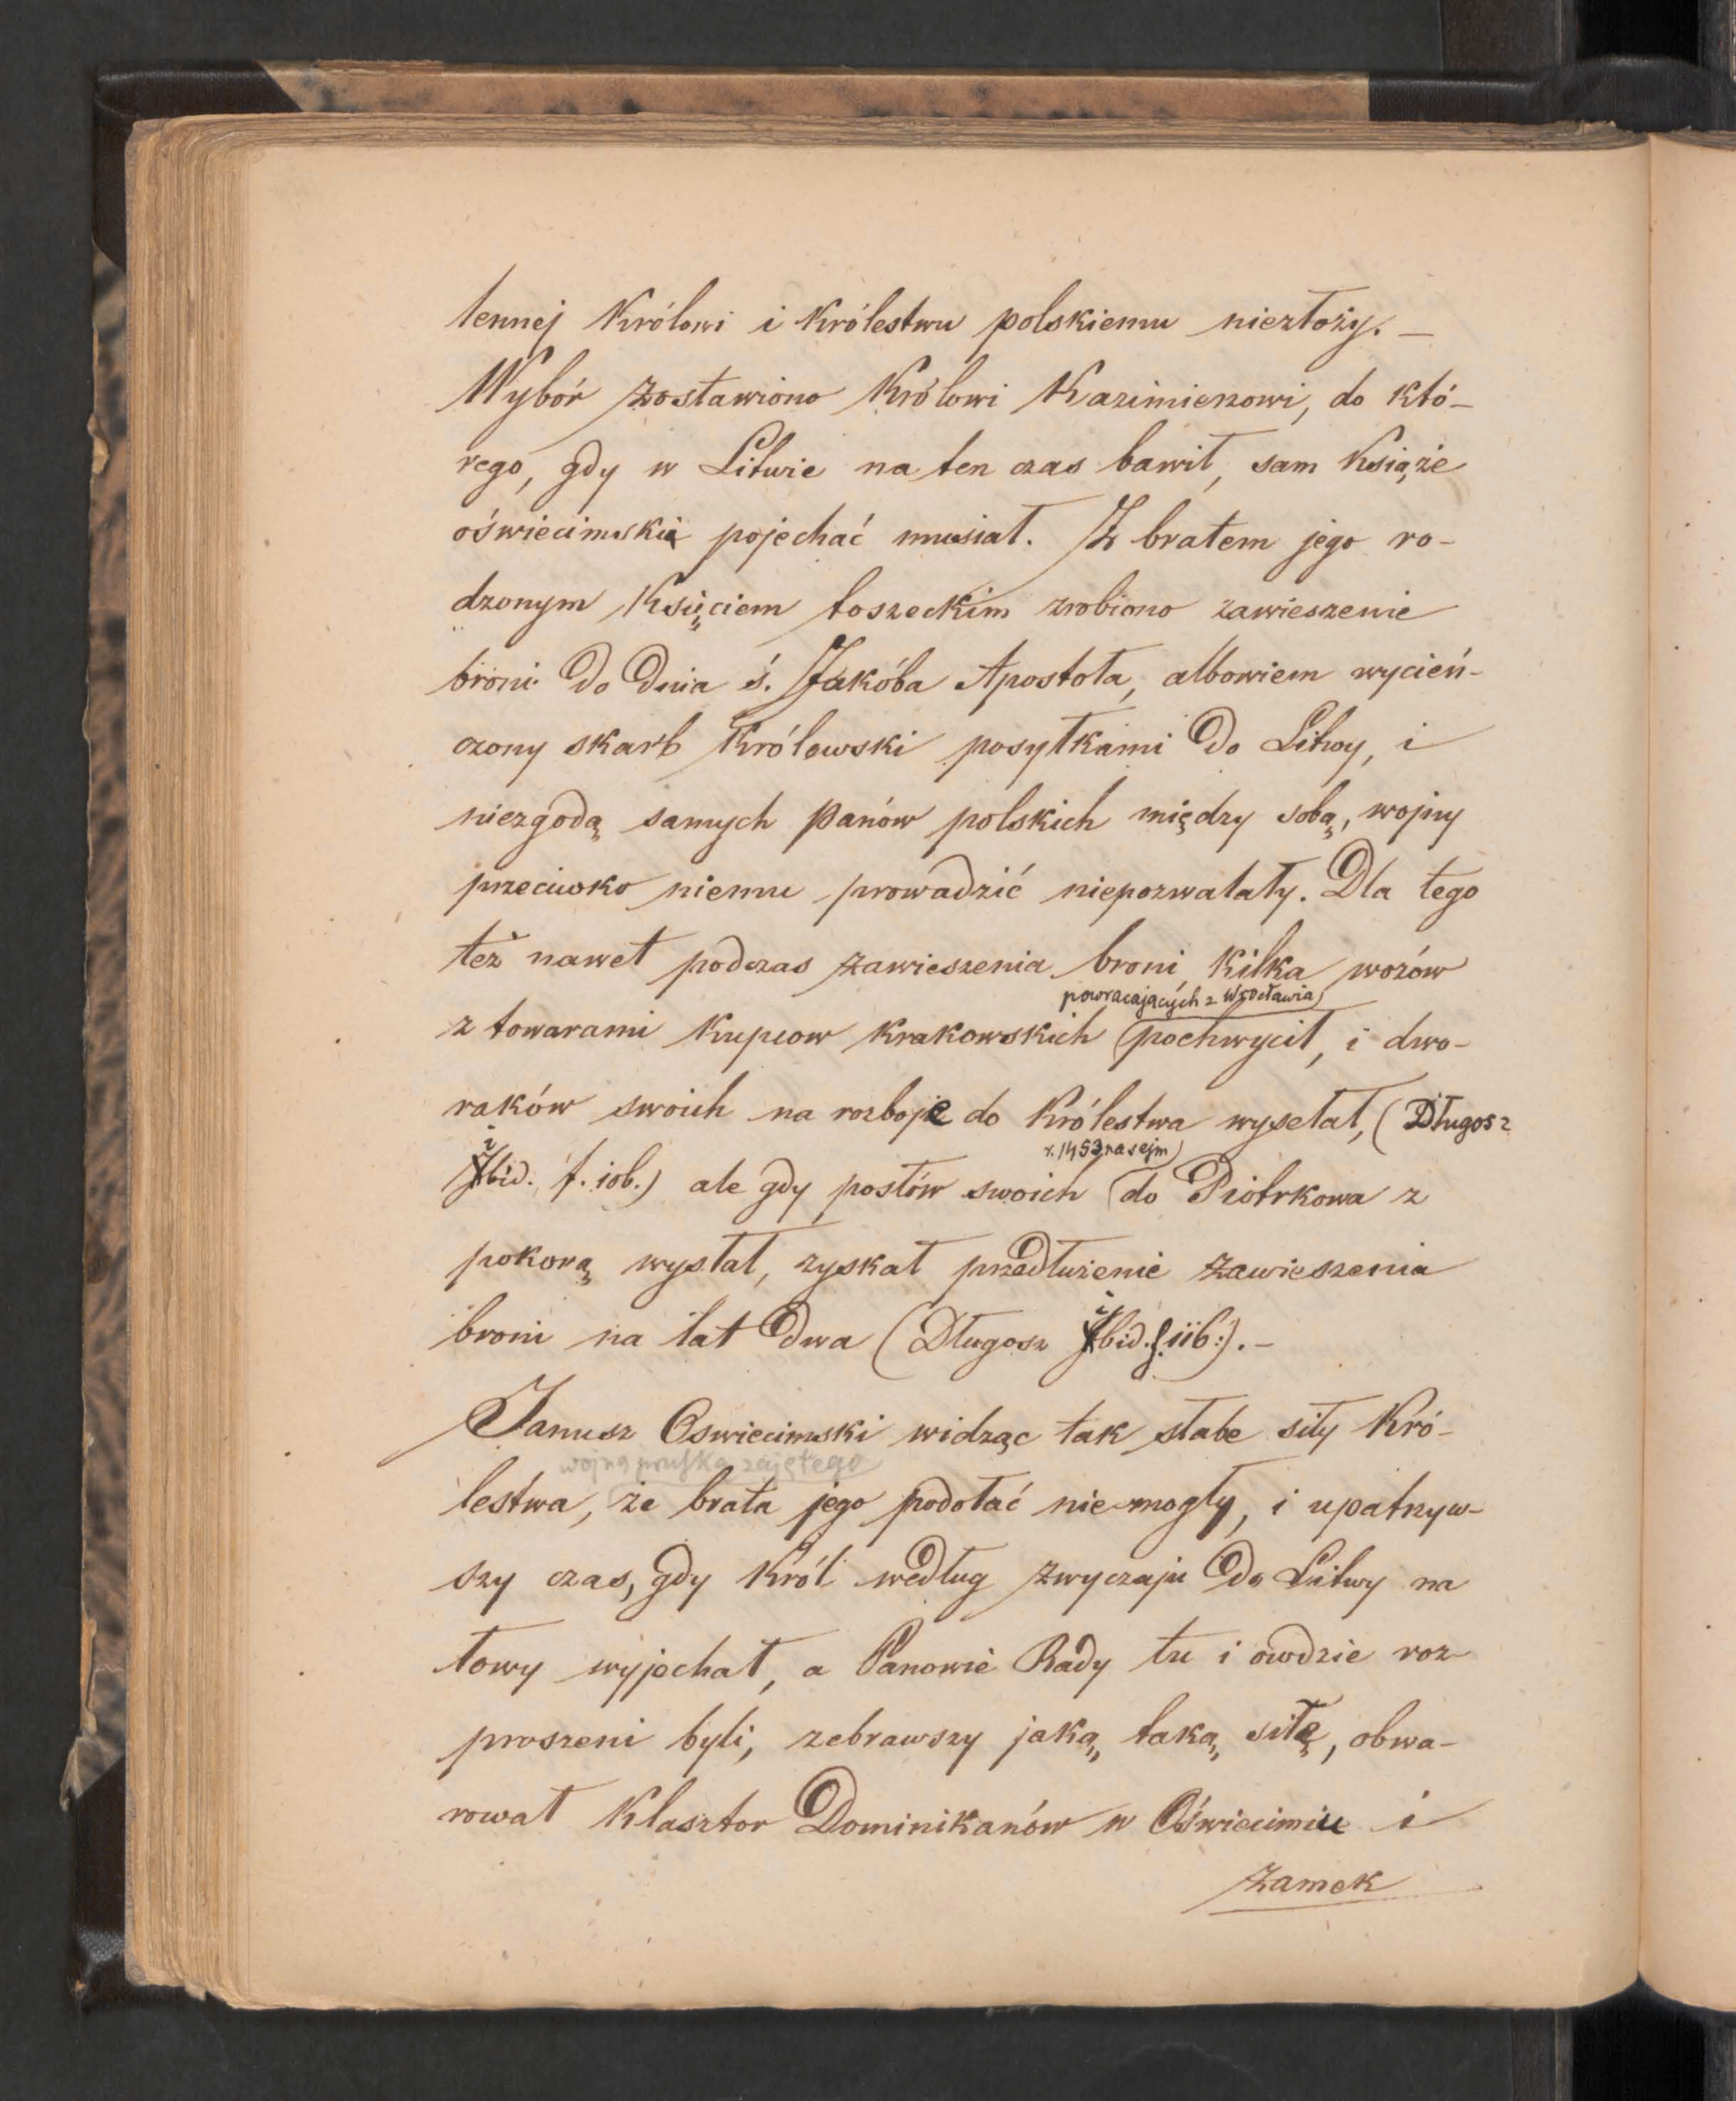 lennej Królowi i Królestwu polskiemu niezłoży. —
Wybór zostawiono Królowi Kazimierzowi, do któ-
rego, gdy w Litwie na ten czas bawił, sam Książe
oświecimski pojechać musiał. Z bratem jego ro-
dzonym Księciem toszeckim zrobiono zawieszenie
broni do dnia ś. Jakóba Apostoła, albowiem wycień-
czony skarb Królewski posyłkami do Litwy, i
niezgodą samych Panów polskich między sobą, wojny
przeciwko niemu prowadzić niepozwalały. Dla tego
też nawet podczas zawieszenia broni, kilka wozów
powracających z Wrocławia
z towarami kupcow krakowskich pochwycił, i dwo-
raków swoich na rozboje do Królestwa wysełał, (Długosz
r. 1453 na sejm
ibid. f. 10b.) ale gdy posłów swoich do Piotrkowa z
pokorą wysłał, zyskał przedłużenie zawieszenia
broni na lat dwa (Długosz ibid. f. 11b:). —
Janusz Oswiecimski widząc tak słabe siły Kró-
wojną pruską zajętego
lestwa, że brata jego podołać nie mogły, i upatrzyw-
szy czas, gdy Król według zwyczaju do Litwy na
łowy wyjechał, a Panowie Rady tu i owdzie roz-
proszeni byli, zebrawszy jaką, taką, siłę, obwa-
rował Klasztor Dominikanów w Oświecimiu i
zamek